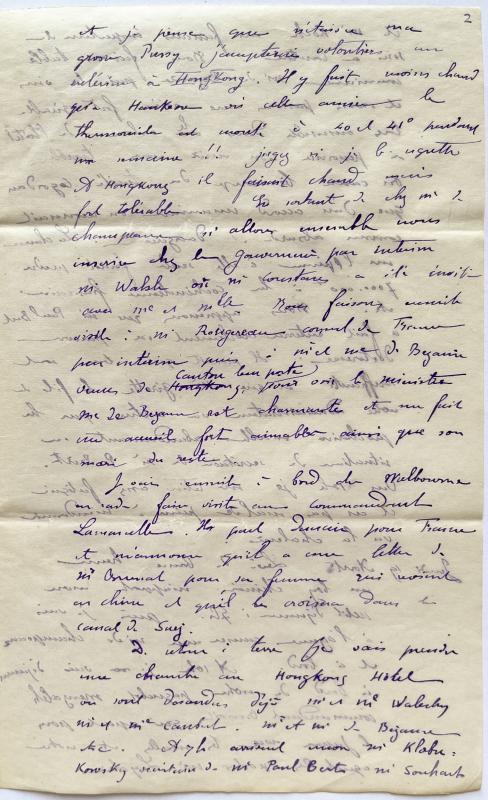 2
et je pense que n'était ma
grosse Pussy j'accepterais volontiers un
intérim à Hongkong. Il y fait moins chaud
qu'à Hankow où cette année le
thermomètre est monté à 40 et 41° pendant
une semaine !! jugez si je le regrette
A Hongkong il faisait chaud mais
fort tolérable En sortant de chez Mr de
Champeaux allons ensemble nous
inscrire chez le Gouverneur par intérim
Mr Walsh où Mr Constans a été invité
avec Mme et Mlle Nous faisons ensuite
visite à Mr Rougereau consul de France
par intérim puis à Mr et Mme de Bezaure
venus de Hongkong Canton leur poste pour voir le ministre
Mme de Bezaure est charmante et me fait
un accueil fort aimable ainsi que son
mari du reste
J'vais ensuite à bord du Melbourne
en rade faire visite au commandant
Ils part demain pour France
et m'annonce qu'il a une lettre de
Mr pour sa femme qui revient
en chine et qu'il la croisera dans le
canal de Suez.
De retour à terre je vais prendre
une chambre au Hongkong Hotel
où sont descendus déjà Mr et Mme
Mr et Mme Mr et Mme de Bezaure
etc. A 7h arrivent Mr Klobu=
kowsky secrétaire de Mr Paul Bert, Mr Souhart